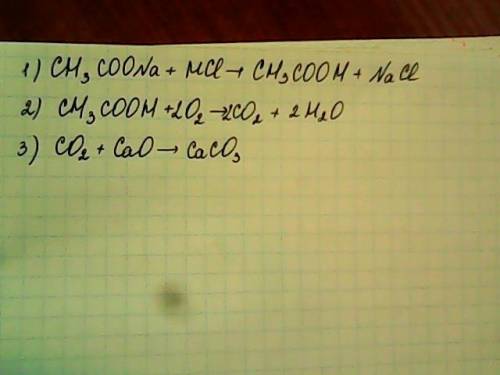 1) CH₃COONa + HCl → CH₃COOH + NaCl
2) CH₃COOH + 2O₂ → 2CO₂ + 2H₂O
3) CO₂ + CaO → CaCO₃